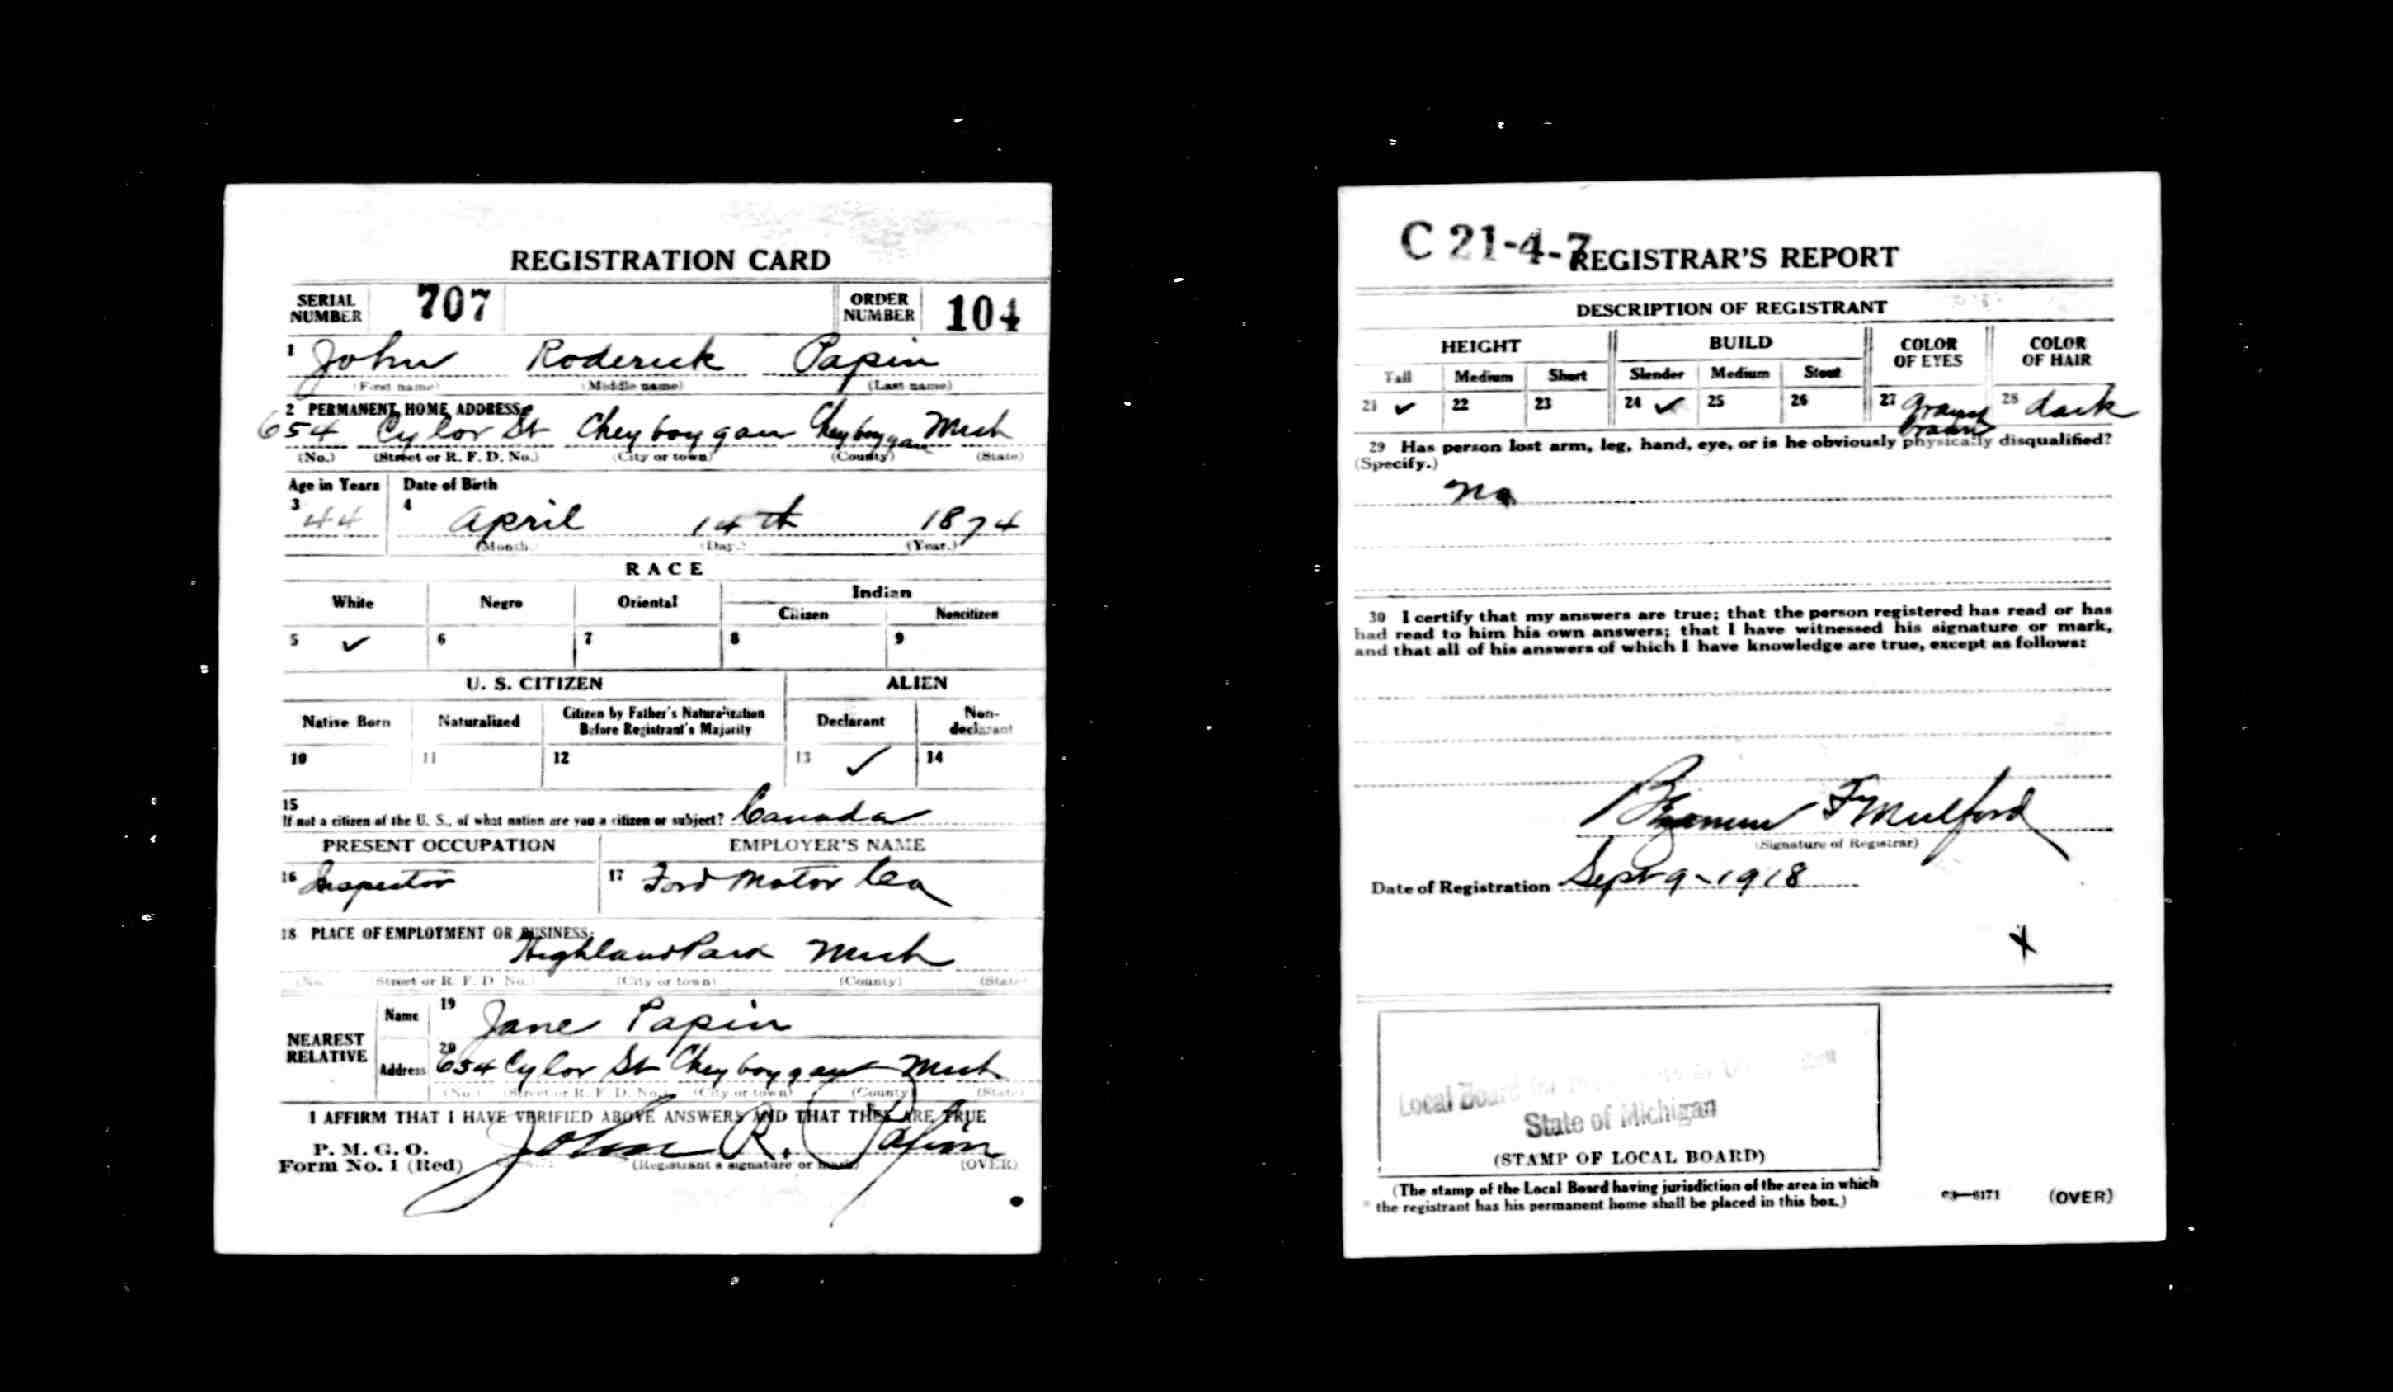 REGISTRATION CARD
SERIAL NUMBER 707 ORDER NUMBER 104
1 John Roderick Papin
(First name) (Middle name) (Last name)
2 PERMANENT HOME ADDRESS:
654 Cylor St Cheyboygan Cheyboygan Mich
(No.) (Street or R. F. D. No.) (City or town) (County) (State)
Age in Years Date of Birth
3 44 4 April 14th 1874
(Month.) (Day.) (Year.)
RACE
White Negro Oriental Indian
Citizen Noncitizen
5 ✓ 6 7 8 9
U. S. CITIZEN ALIEN
Native Born Naturalized Citizen by Father's Naturalization Before Registrant's Majority Declarant Non-declarant
10 11 12 13 ✓ 14
15
If not a citizen of the U. S., of what nation are you a citizen or subject? Canada
PRESENT OCCUPATION EMPLOYER'S NAME
16 Inspector 17 Ford Motor Co
18 PLACE OF EMPLOYMENT OR BUSINESS:
Highland Park Mich
(No.) (Street or R. F. D. No.) (City or town) (County) (State)
NEAREST RELATIVE
Name 19 Jane Papin
Address 20 654 Cylor St Cheyboygan Mich
(No.) (Street or R. F. D. No.) (City or town) (County) (State)
I AFFIRM THAT I HAVE VERIFIED ABOVE ANSWERS AND THAT THEY ARE TRUE
P. M. G. O.
Form No. 1 (Red) John R. Papin
(Registrant's signature or mark) (OVER)
C 21-4-7 REGISTRAR'S REPORT
DESCRIPTION OF REGISTRANT
HEIGHT BUILD COLOR OF EYES COLOR OF HAIR
Tall Medium Short Slender Medium Stout
21 ✓ 22 23 24 ✓ 25 26 27 brown 28 dark
29 Has person lost arm, leg, hand, eye, or is he obviously physically disqualified?
(Specify.)
No
30 I certify that my answers are true; that the person registered has read or has
had read to him his own answers; that I have witnessed his signature or mark,
and that all of his answers of which I have knowledge are true, except as follows:
Benjamin F Mulford
(Signature of Registrar)
Date of Registration Sept 9-1918
X
Local Board for
State of Michigan
(STAMP OF LOCAL BOARD)
(The stamp of the Local Board having jurisdiction of the area in which
the registrant has his permanent home shall be placed in this box.)
03—6171 (OVER)